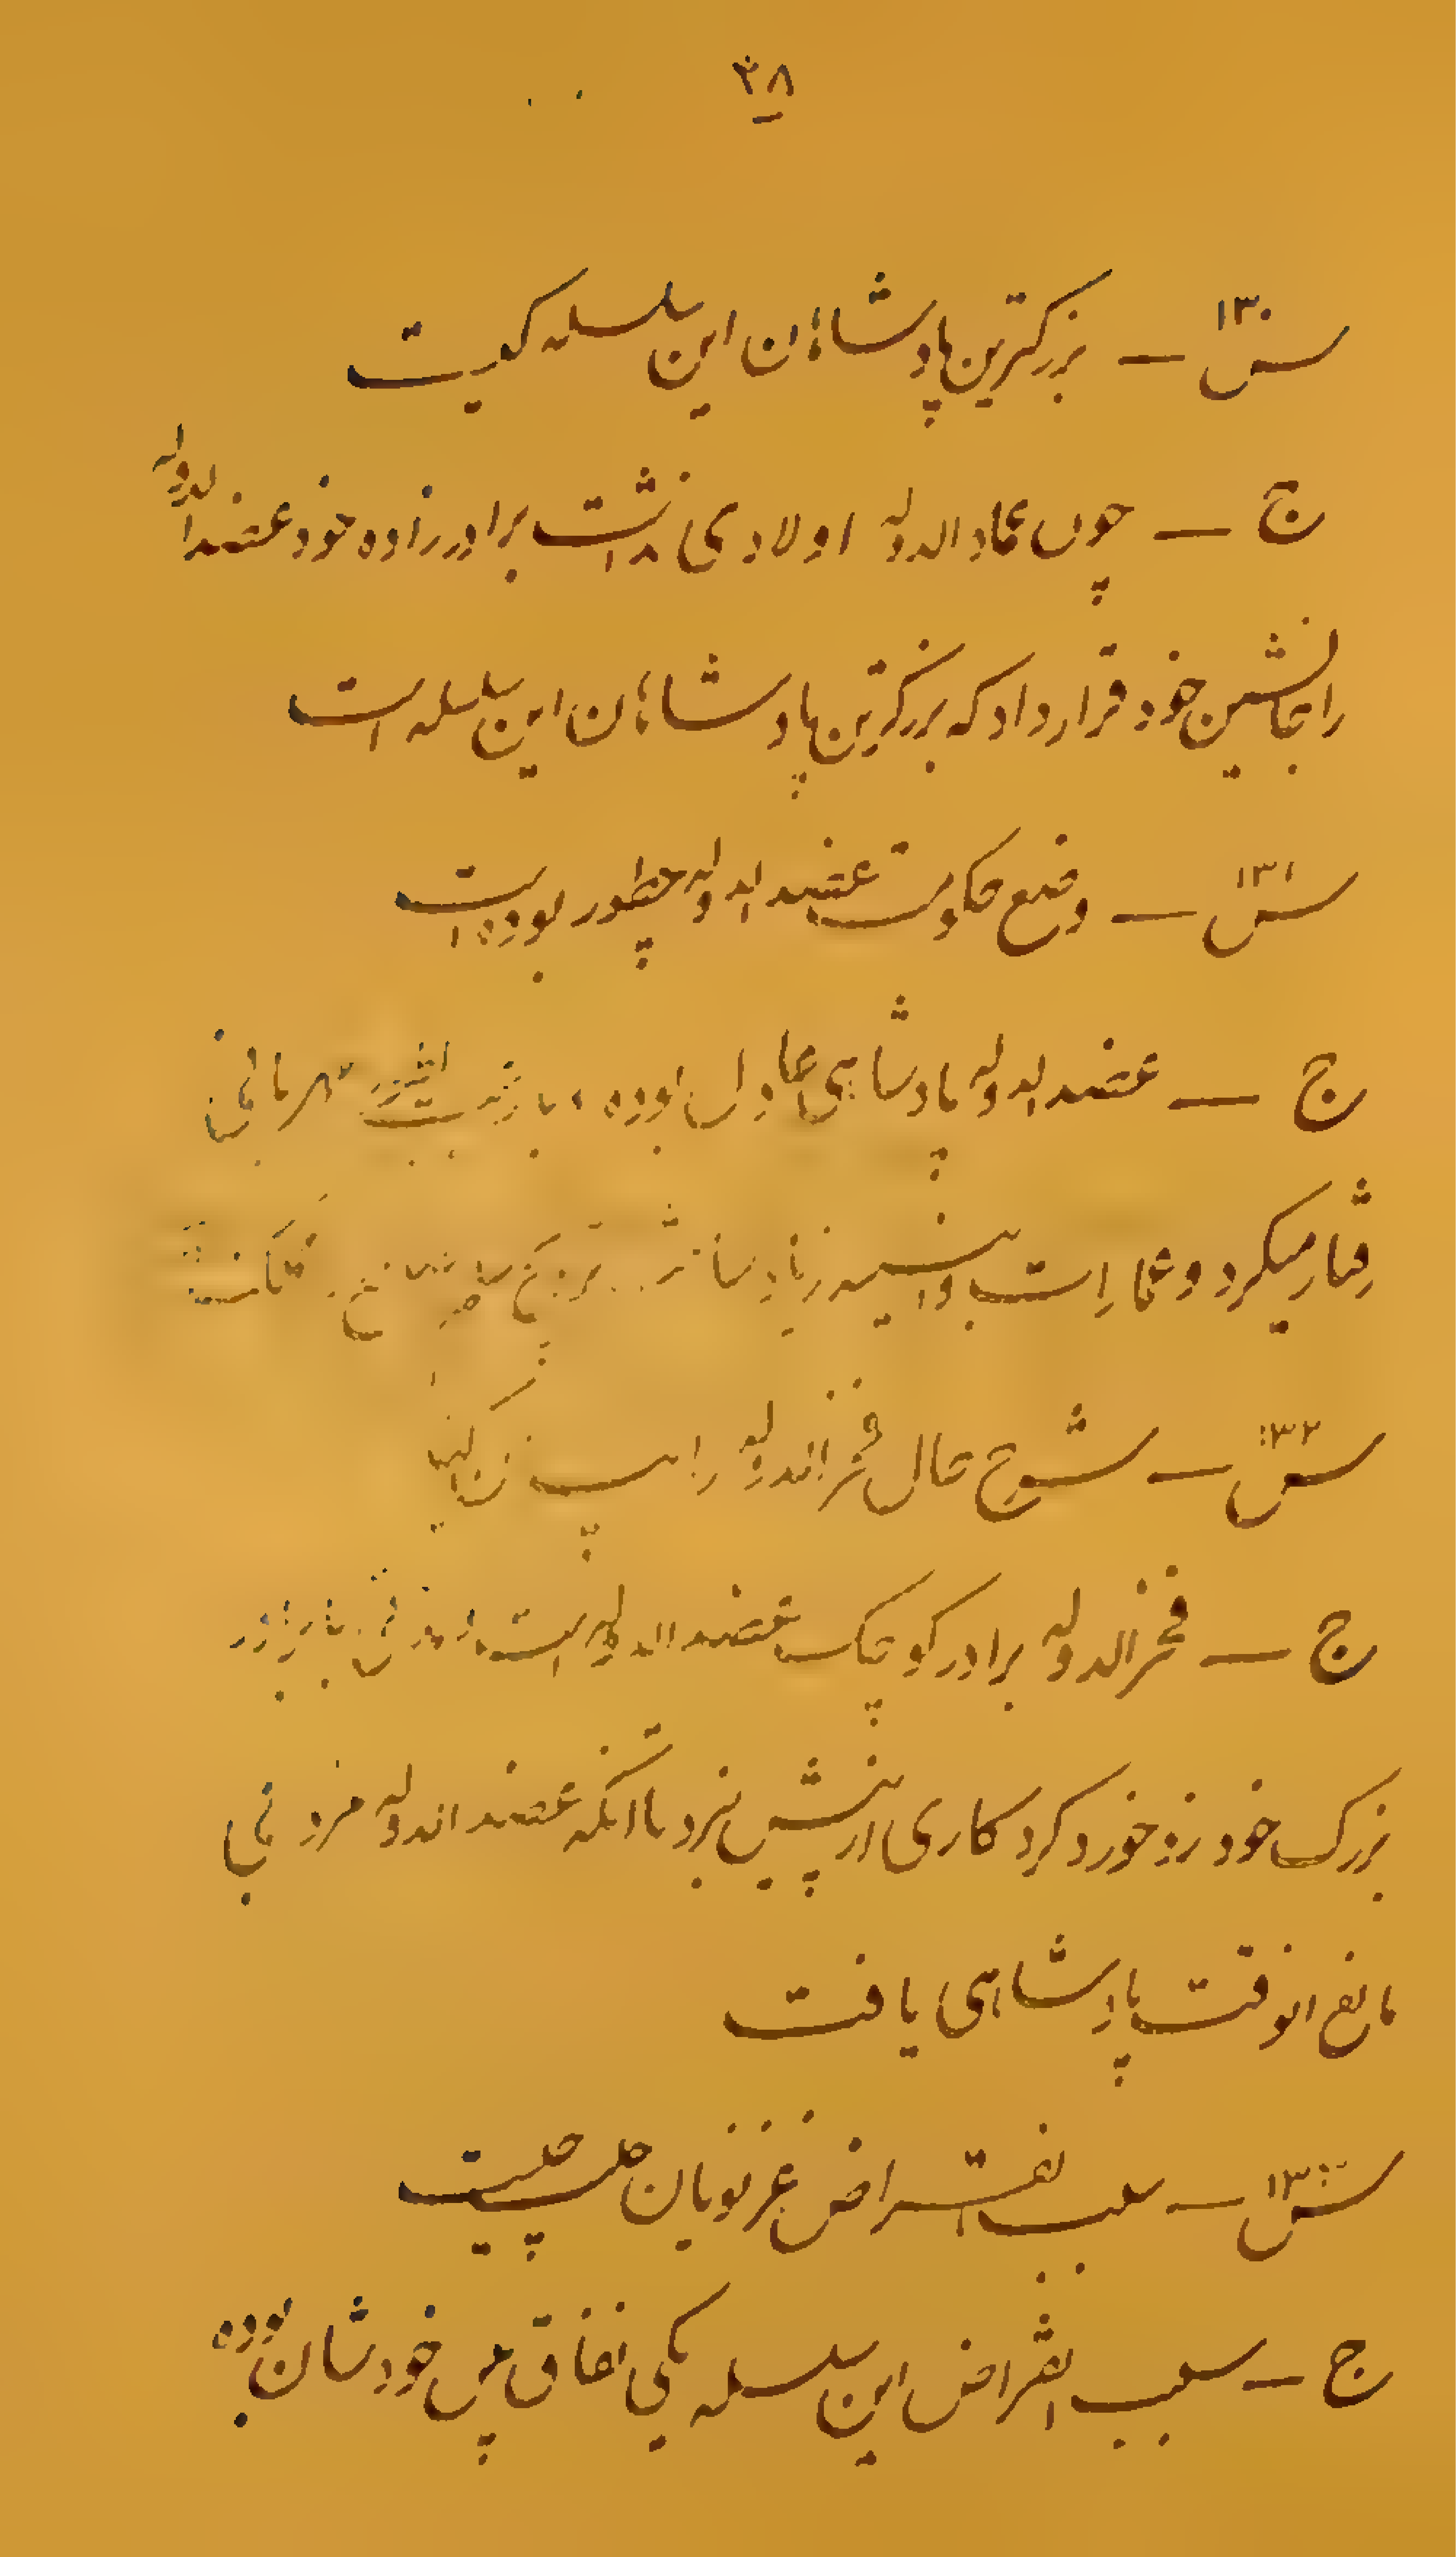 ۳۸
س ۱۳۰ — بزرگترین پادشاهان این سلسله کیست
ج — چون عماد الدوله اولادی نداشت برادرزاده خود عضد الدوله
را جانشین خود قرار داد که بزرگترین پادشاهان این سلسله است
س ۱۳۱ — وضع حکومت عضد الدوله چطور بوده است
ج — عضد الدوله پادشاهی عادل بوده با رعیت مهربانی
رفتار میکرد و عمارات و ابنیه زیاد ساخت
س ۱۳۲ — شرح حال فخر الدوله را بیان کنید
ج — فخر الدوله برادر کوچک عضد الدوله است با برادر
بزرگ خود زد و خورد کرد کاری از پیش نبرد تا آنکه عضد الدوله مرد بی
مانع آنوقت پادشاهی یافت
س — سبب انقراض غزنویان چیست
ج — سبب انقراض این سلسله یکی نفاق بین خودشان بوده